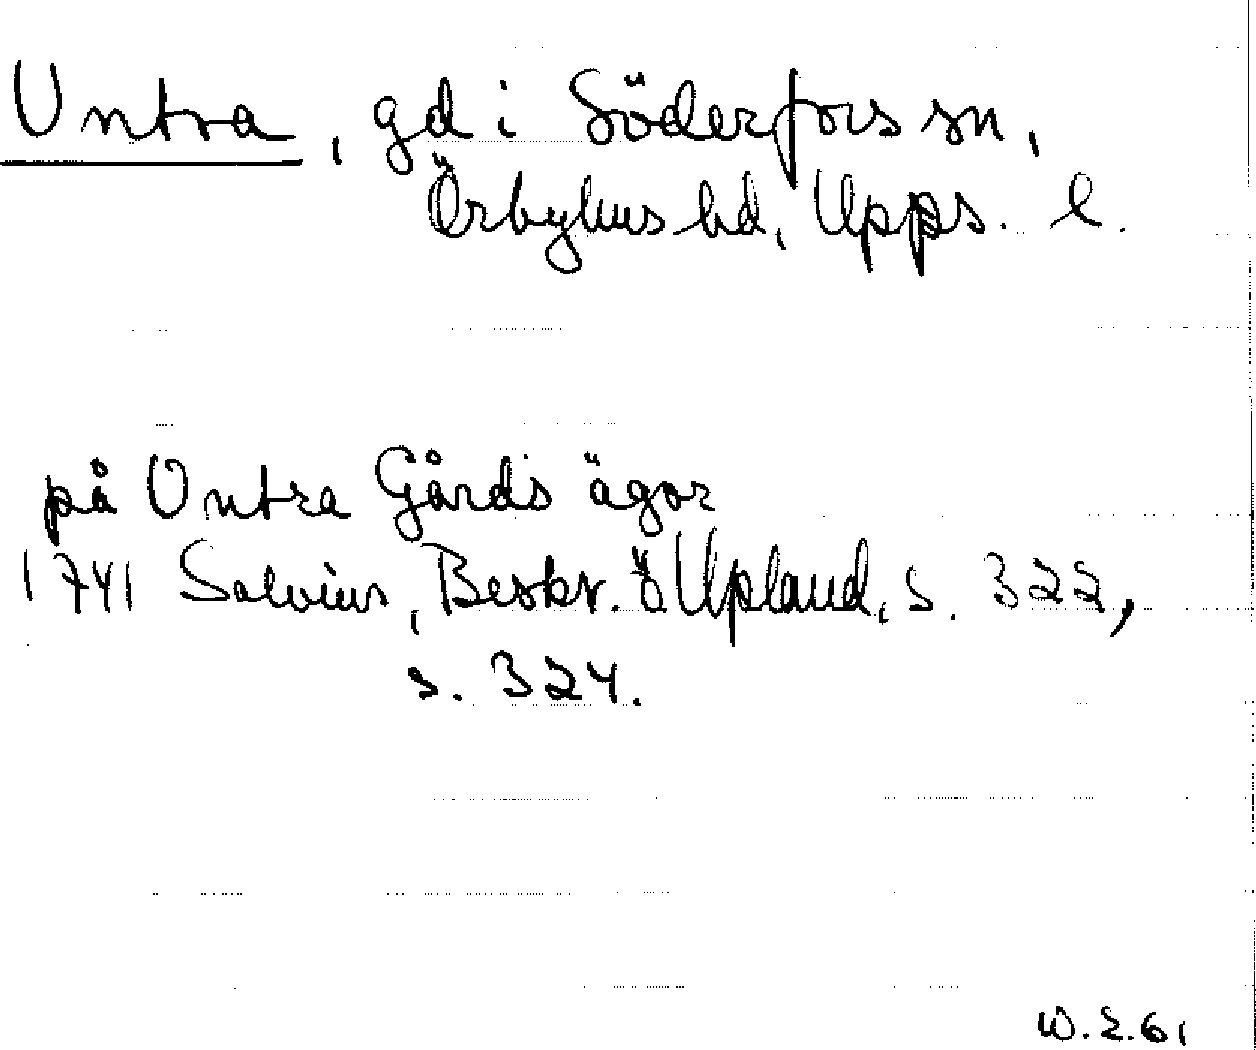 Untra, gd i Söderfors sn,
Örbyhus hd, Upps. l.
på Ontra Gårds ägor
1741 Salvius, Beskr. ö Upland, s. 322,
s. 324.
W.E.61